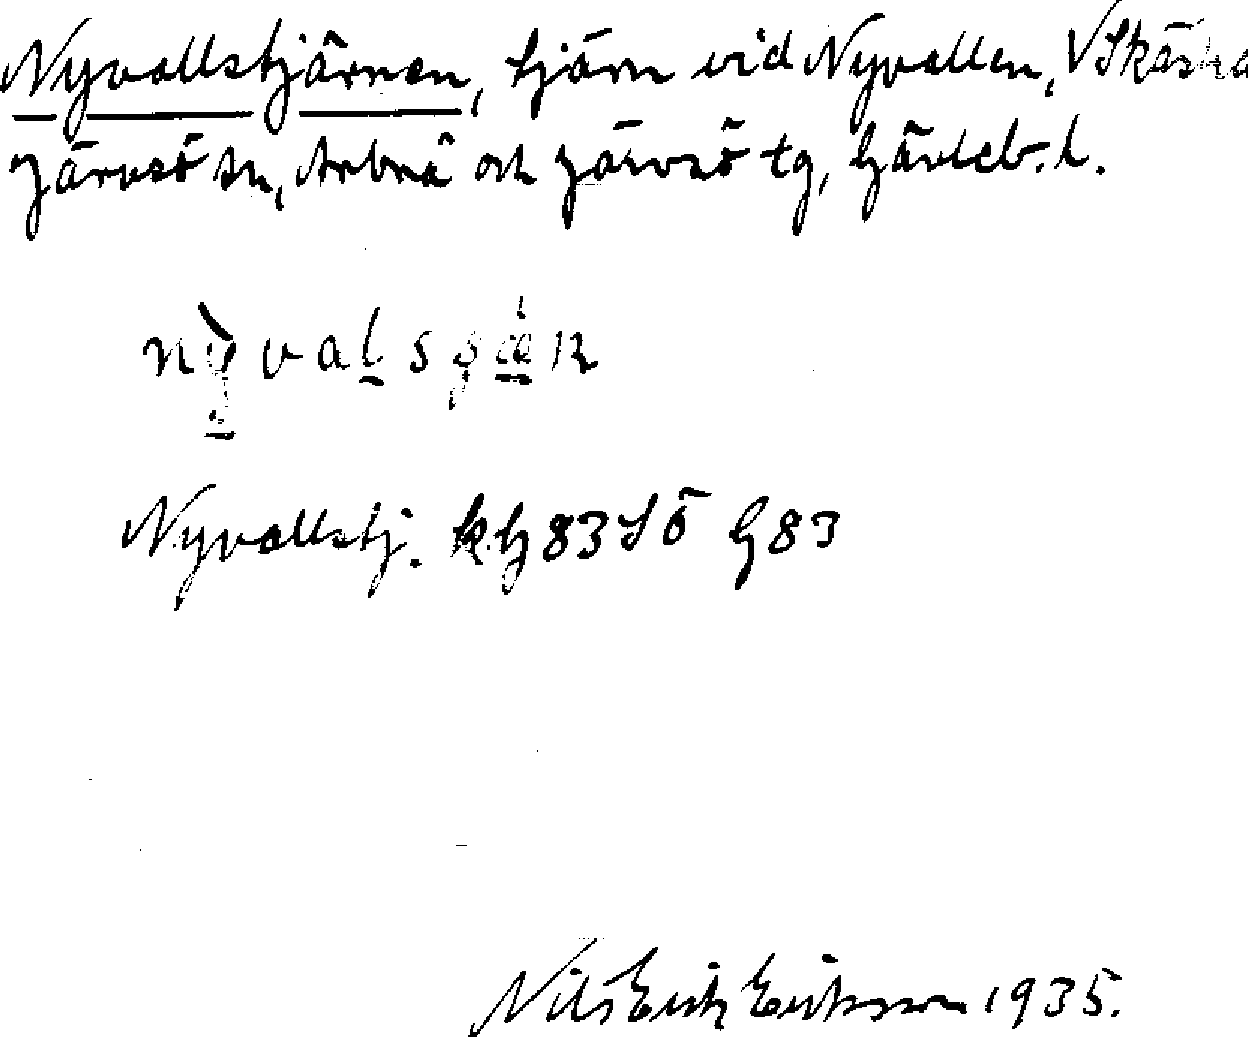 Nyvallstjärnen, tjärn vid Nyvallen, V Skästra
Järvsö sn, Arbrå och Järvsö tg, Gävleb. l.
Nyvallstj. kg 83 SÖ G83
Nils Erik Eriksson 1935.